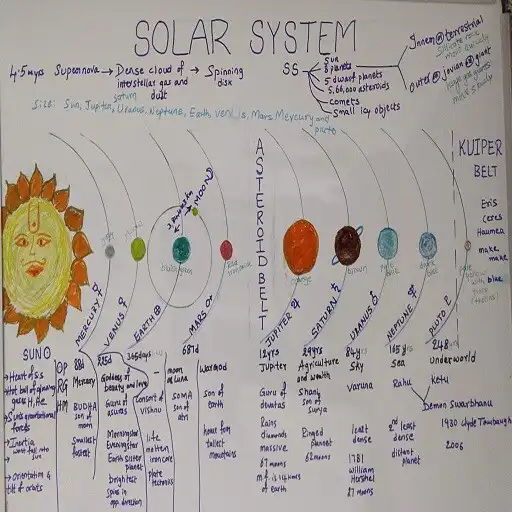 SOLAR SYSTEM
4.5 Supernova → Dense cloud of → Spinning
interstellar gas and disk
dust
SS
Sun
8 planets
5 dwarf planets
asteroids
Comets
Small icy objects
Inner or terrestrial
Outer or Jovian or giant
Size: Sun, Jupiter, Saturn, Uranus, Neptune, Earth, Venus, Mars, Mercury and
pluto
MOON
ASTEROID BELT
KUIPER
BELT
Eris
Ceres
Haumea
make
make
orange
brown
SUN
MERCURY ☿
VENUS ♀
EARTH ⊕
MARS ♂
JUPITER ♃
SATURN ♄
URANUS
NEPTUNE
PLUTO
OP 88d 225d 365days 687d 12yrs 29yrs 84yrs 165yrs 248
RG Mercury Goddess of beauty and love moon or Luna War god Jupiter Agriculture and wealth Sky Sea Underworld
HM BUDHA son of moon Guru of asuras Consort of Vishnu SOMA son of atri Son of earth Guru of devatas Shani son of surya Varuna Rahu Ketu
Demon Swarbhanu
→ Heart of SS
Hot ball of glowing
gases H, He
→ Sun's gravitational
forces
→ Inertia
→ Orientation &
tilt of orbits
Smallest
fastest
Morningstar
Eveningstar
Earth sister
planet
brightest
spins in
opp. direction
Life
molten
iron core
plate
tectonics
home for
tallest
mountains
Rains
diamonds
massive
67 moons
of earth
Ringed
planet
62 moons
least
dense
1781
William
Hershel
27 moons
2nd least
dense
distant
planet
1930 Clyde Tombaugh
2006